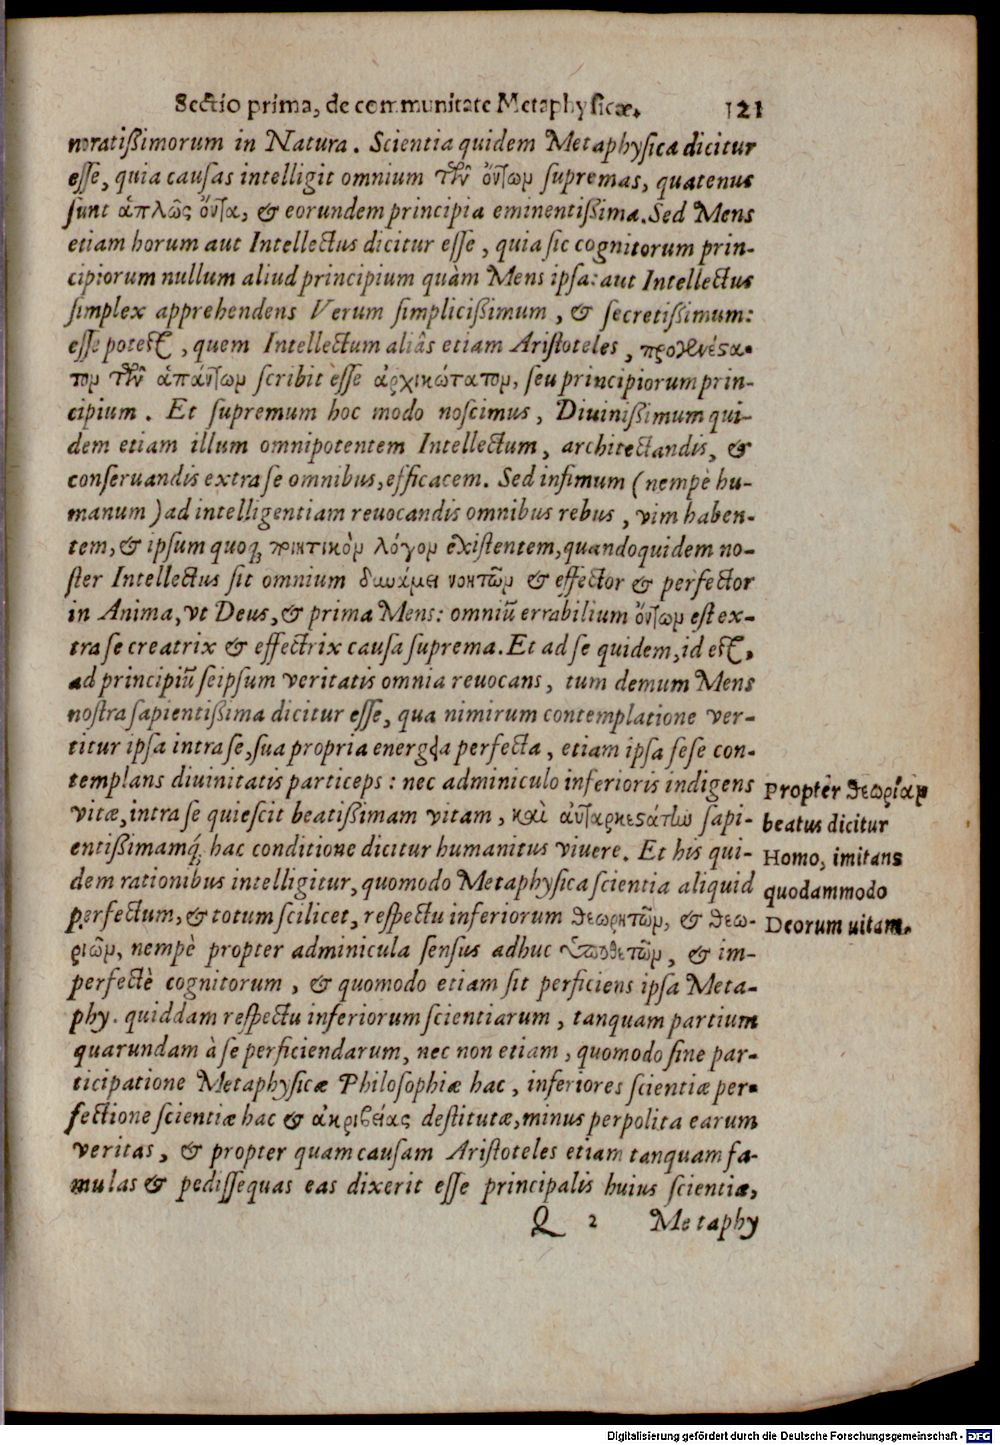 Sectio prima, de communitate Metaphysicæ. 121
noratißimorum in Natura. Scientia quidem Metaphysica dicitur
esse, quia causas intelligit omnium τῶν ὄντων supremas, quatenus
sunt ἁπλῶς ὄντα, & eorundem principia eminentißima. Sed Mens
etiam horum aut Intellectus dicitur esse, quia sic cognitorum prin-
cipiorum nullum aliud principium quàm Mens ipsa: aut Intellectus
simplex apprehendens Verum simplicißimum, & secretißimum:
esse potest, quem Intellectum aliâs etiam Aristoteles, προγενέστα-
τον τῶν ἁπάντων scribit esse ἀρχικώτατον, seu principiorum prin-
cipium. Et supremum hoc modo noscimus, Diuinißimum qui-
dem etiam illum omnipotentem Intellectum, architectandis, &
conseruandis extra se omnibus, efficacem. Sed infimum (nempè hu-
manum) ad intelligentiam reuocandis omnibus rebus, vim haben-
tem, & ipsum quoq; ποιητικὸν λόγον existentem, quandoquidem no-
ster Intellectus sit omnium δυνάμει νοητῶν & effector & perfector
in Anima, vt Deus, & prima Mens: omniũ errabilium ὄντων est ex-
tra se creatrix & effectrix causa suprema. Et ad se quidem, id est,
ad principiũ seipsum veritatis omnia reuocans, tum demum Mens
nostra sapientißima dicitur esse, qua nimirum contemplatione ver-
titur ipsa intra se, sua propria energia perfecta, etiam ipsa sese con-
templans diuinitatis particeps: nec adminiculo inferioris indigens
vitæ, intra se quiescit beatißimam vitam, καὶ αὐταρκεστάτην sapi-
entißimamq́; hac conditione dicitur humanitus viuere. Et his qui-
dem rationibus intelligitur, quomodo Metaphysica scientia aliquid
perfectum, & totum scilicet, respectu inferiorum θεωρητῶν, & θεω-
ριῶν, nempè propter adminicula sensus adhuc ὑποθετῶν, & im-
perfectè cognitorum, & quomodo etiam sit perficiens ipsa Meta-
phy. quiddam respectu inferiorum scientiarum, tanquam partium
quarundam à se perficiendarum, nec non etiam, quomodo sine par-
ticipatione Metaphysicæ Philosophiæ hac, inferiores scientiæ per-
fectione scientiæ hac & ἀκριβείας destitutæ, minus perpolita earum
veritas, & propter quam causam Aristoteles etiam tanquam fa-
mulas & pedissequas eas dixerit esse principalis huius scientiæ,
Q 2 Metaphy
Propter θεωρίαν
beatus dicitur
Homo, imitans
quodammodo
Deorum uitam.
Digitalisierung gefördert durch die Deutsche Forschungsgemeinschaft - DFG